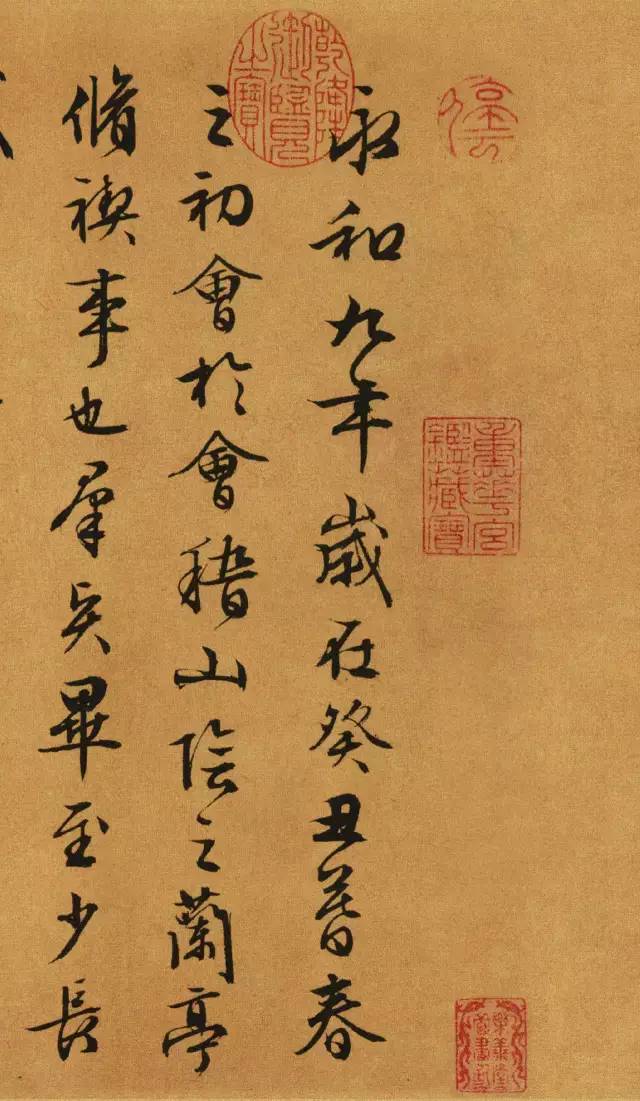 重華宮鑑藏寶
樂善堂圖書記
乾隆御覽之寶
永和九年歲在癸丑暮春
之初會於會稽山陰之蘭亭
脩禊事也羣賢畢至少長